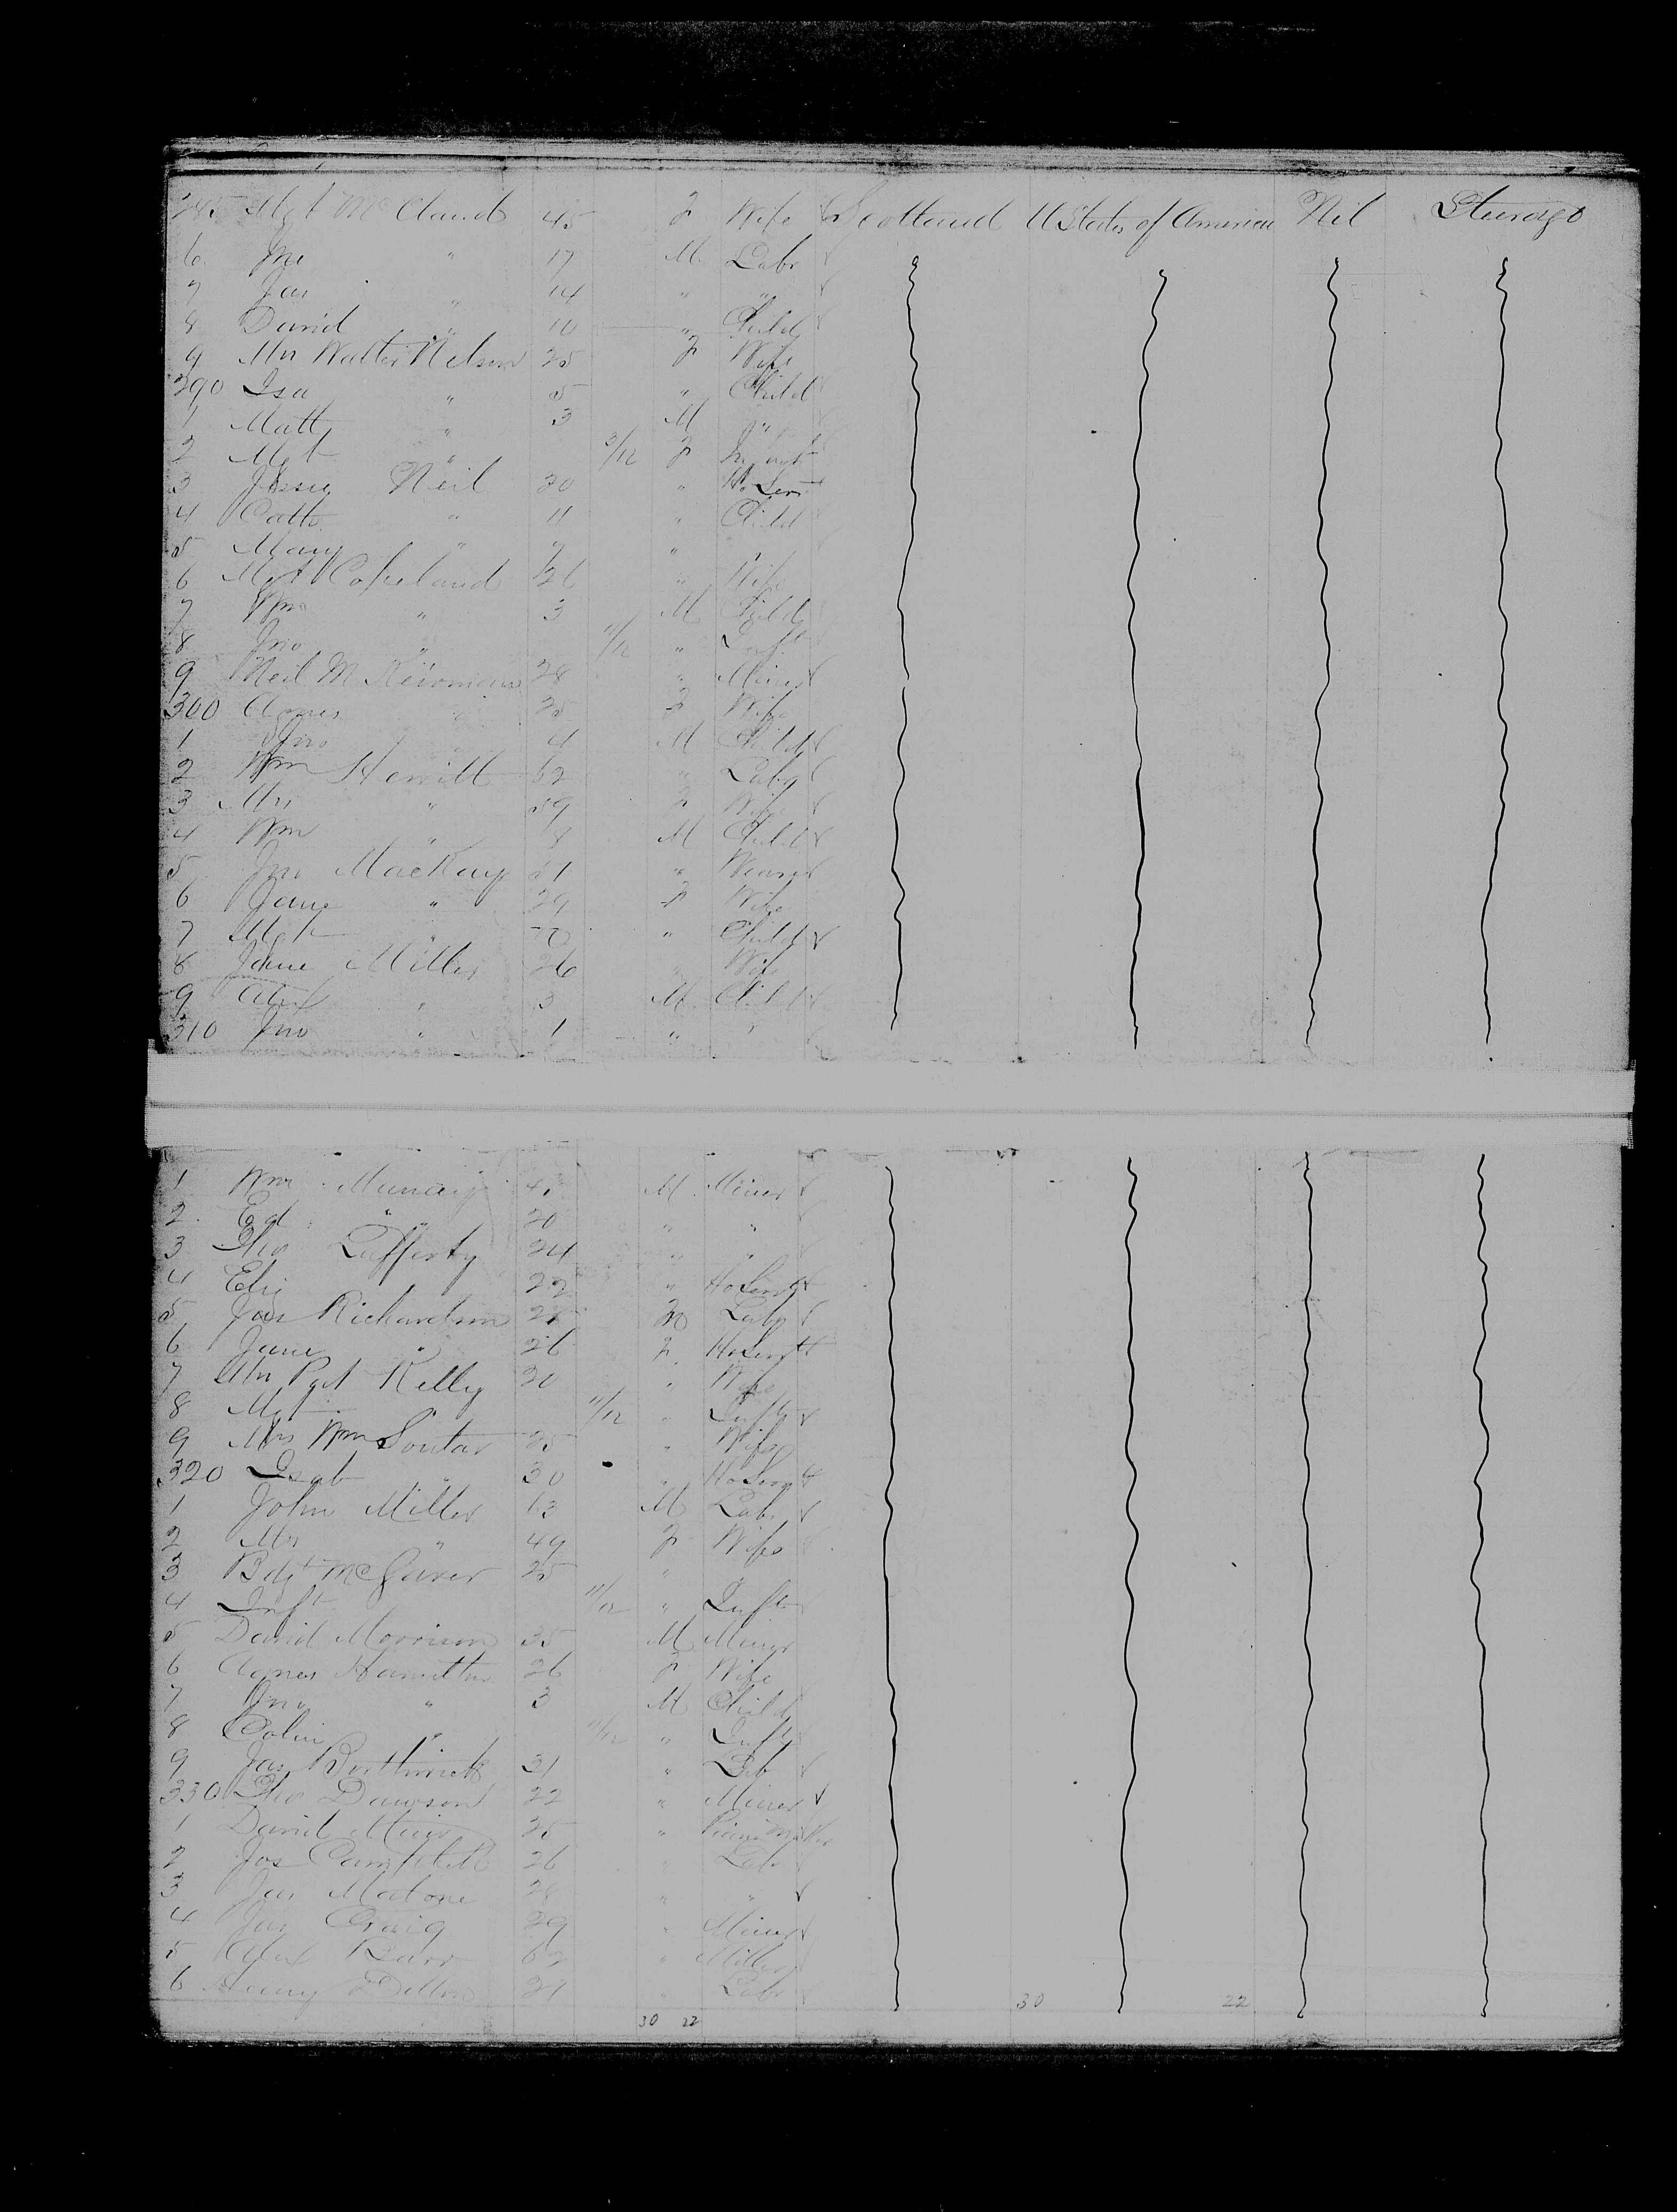 285 Mgt McClaud 45 F Wife Scotland U States of America Nil Steerage
6 Jno " 17 M Labr
7 Jas " 14 " "
8 David " 10 " Child
9 Mrs Walter Nelson 25 F Wife
290 Isa " 5 " Child
1 Matt " 3 M "
2 Mgt " 3/12 F Infant
3 Jessie Neil 20 " Ho Servt
4 Cath " 11 " Child
5 Mary " " "
6 Mgt Copeland 26 " Wife
7 Wm " 3 M Child
8 Jno " 11/12 " Inft
9 Neil 28 " Miner
300 Agnes " 25 F Wife
1 Jno 4 M Child
2 Wm Hewitt 62 " Labr
3 Mrs " 59 F Wife
4 Wm " 8 M Child
5 Jno MacKay 31 " Weaver
6 Jane " 29 F Wife
7 Mgt " " Child
8 Jane Miller 26 " Wife
9 Alex " 3 M Child
310 Jno " 1 " "
1 Wm Muncey M Miner
2 Ed " 20 " "
3 Geo Lafferty 24 " "
4 Eliz 22 " Ho Servt
5 Jas Richardson M Labr
6 Jane " 26 F Ho Servt
7 Mrs Pat Kelly 20 " Wife
8 Mgt 11/12 " Inft
9 Mrs Wm Soutar 25 " Wife
320 Isab " 30 " Ho Servt
1 John Miller 63 M Labr
2 Mrs " 49 F Wife
3 Bdgt 25 " "
4 Inft 11/12 " Inft
5 David Morrison 35 M Miner
6 Agnes Hamilton 26 F Wife
7 Jno " 3 M Child
8 Colin " 11/12 " Inft
9 Jas Borthwick 31 " Lab
330 Geo Dawson 22 " Miner
1 David Muir 25 "
2 Jos Campbell 26 " Labr
3 Jas Malone 28 " "
4 Jas Craig 29 " Miner
5 Alex 62 " Miller
6 Henry Dillon 21 " Labr
30 22
30 22